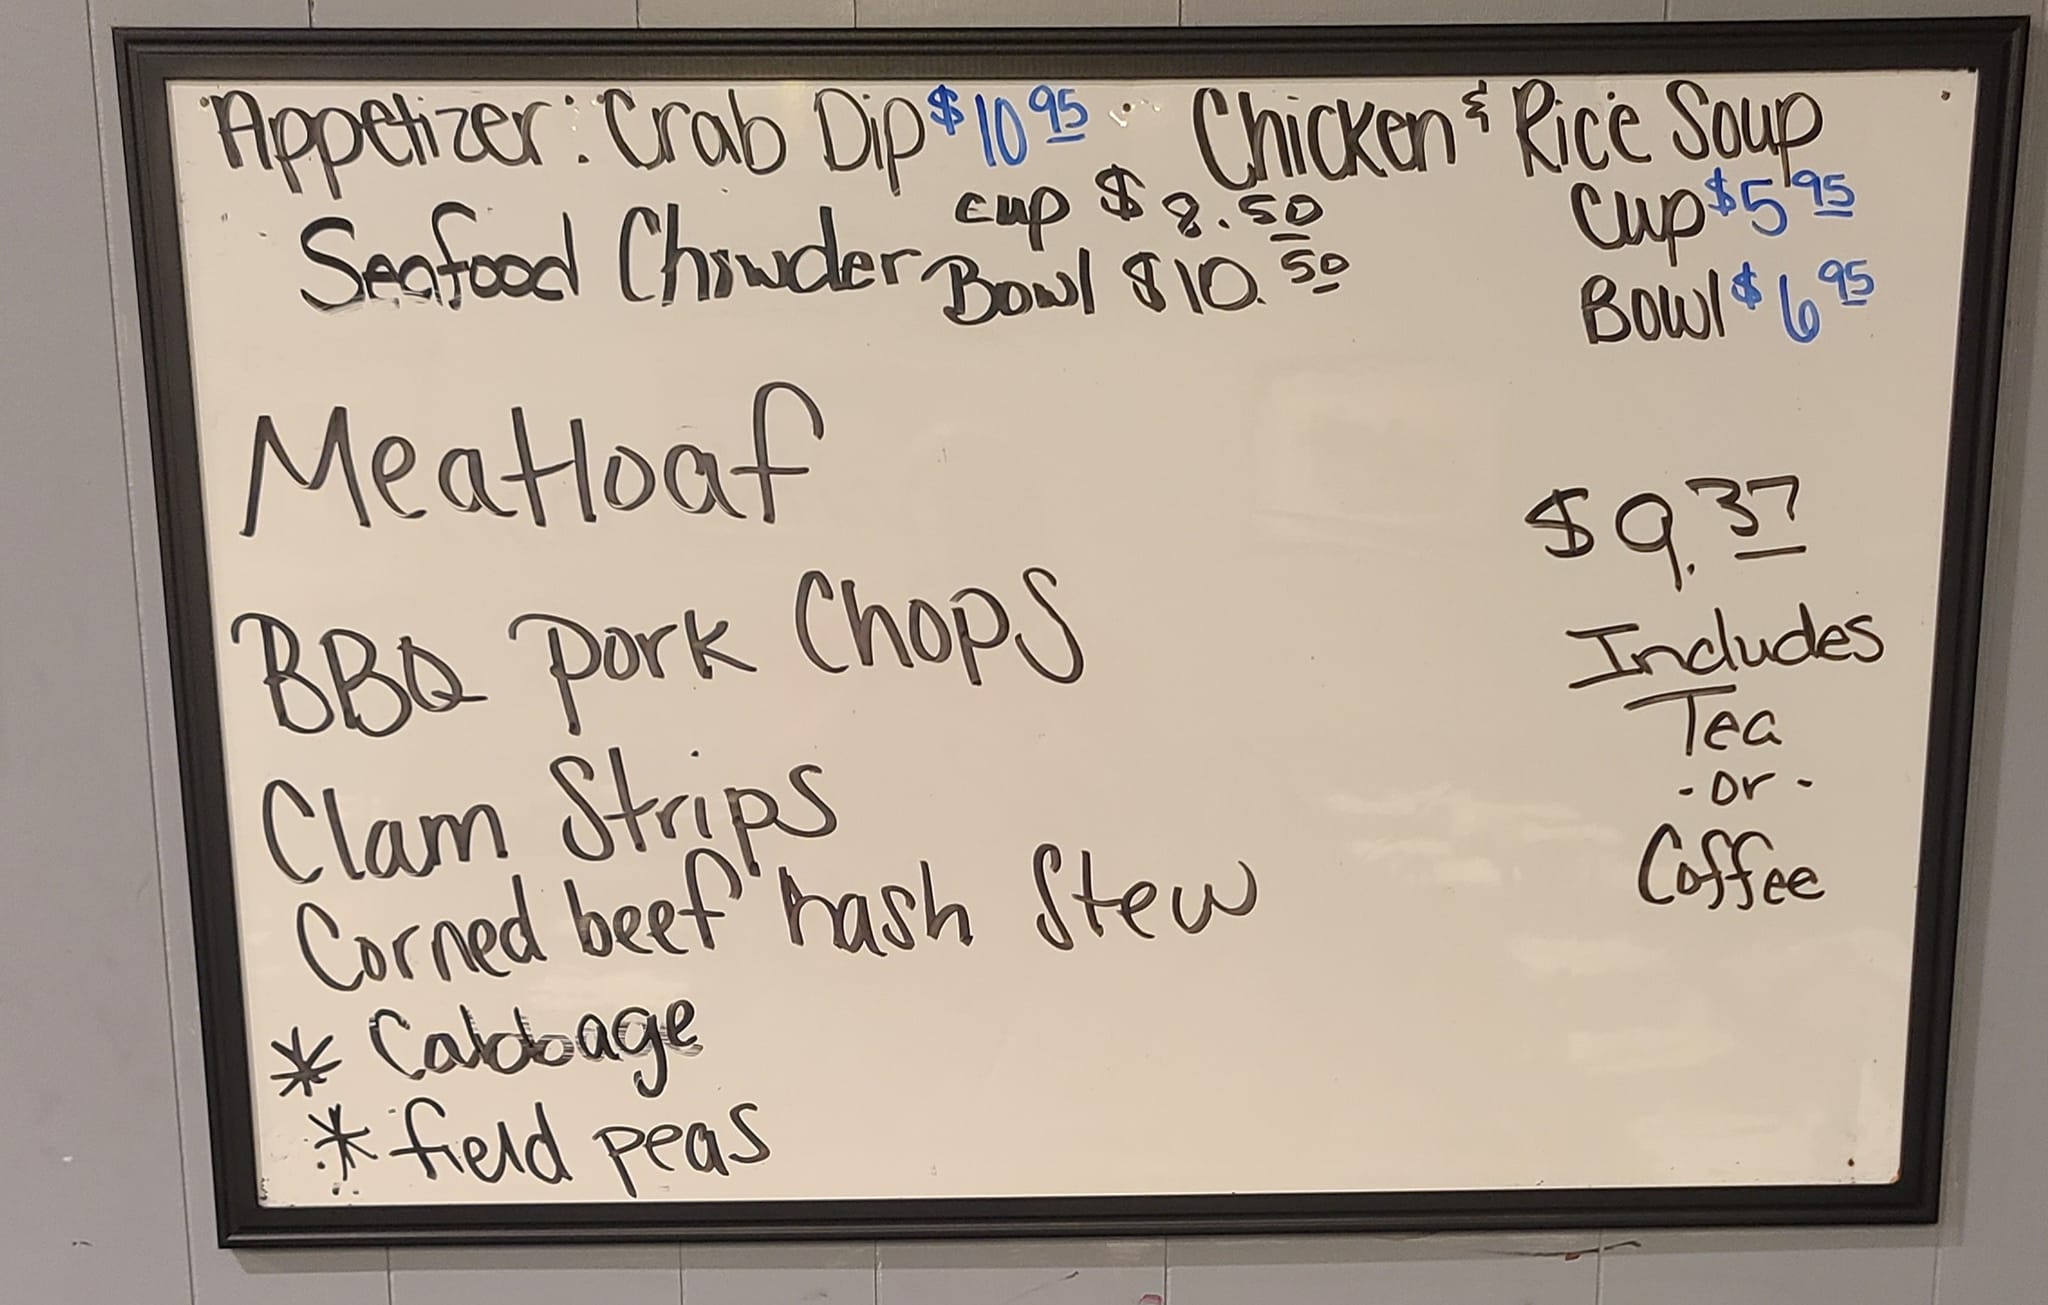 Appetizer: Crab Dip $10 95
Chicken & Rice Soup
Cup $5 95
Bowl $6 95
Seafood Chowder
cup $8.50
Bowl $10.50
Meatloaf
BBQ Pork Chops
Clam Strips
Corned beef hash Stew
* Cabbage
* field peas
$9.37
Includes
Tea
-or-
Coffee